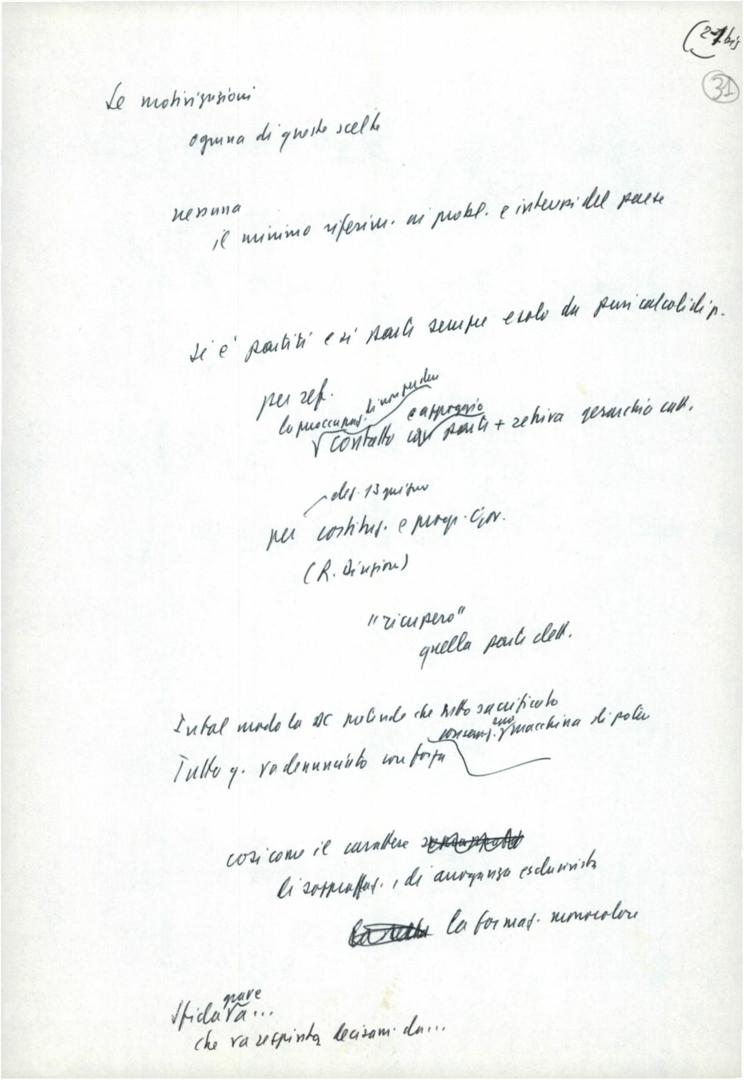 (27 bis
31
Le motivazioni
ognuna di queste scelte
nessuna
il minimo riferim. ai probl. e interessi del paese
si è partiti e si parte sempre e solo da puri calcoli di p.
per ref.
la preoccupaz. di non perdere
contatto e appoggio con parti + retriva gerarchia catt.
del. 13 giugno
per costituz. e progr. Gov.
(R. )
"ricupero"
quella parte elett.
In tal modo la DC pretende che tutto sacrificato
conservaz. sua macchina di potere
Tutto q. va denunciato con forza
così come il carattere
di sopraffaz., di arroganza esclusivista
la formaz. monocolore
Sfida grave...
che va respinta decisam. da...